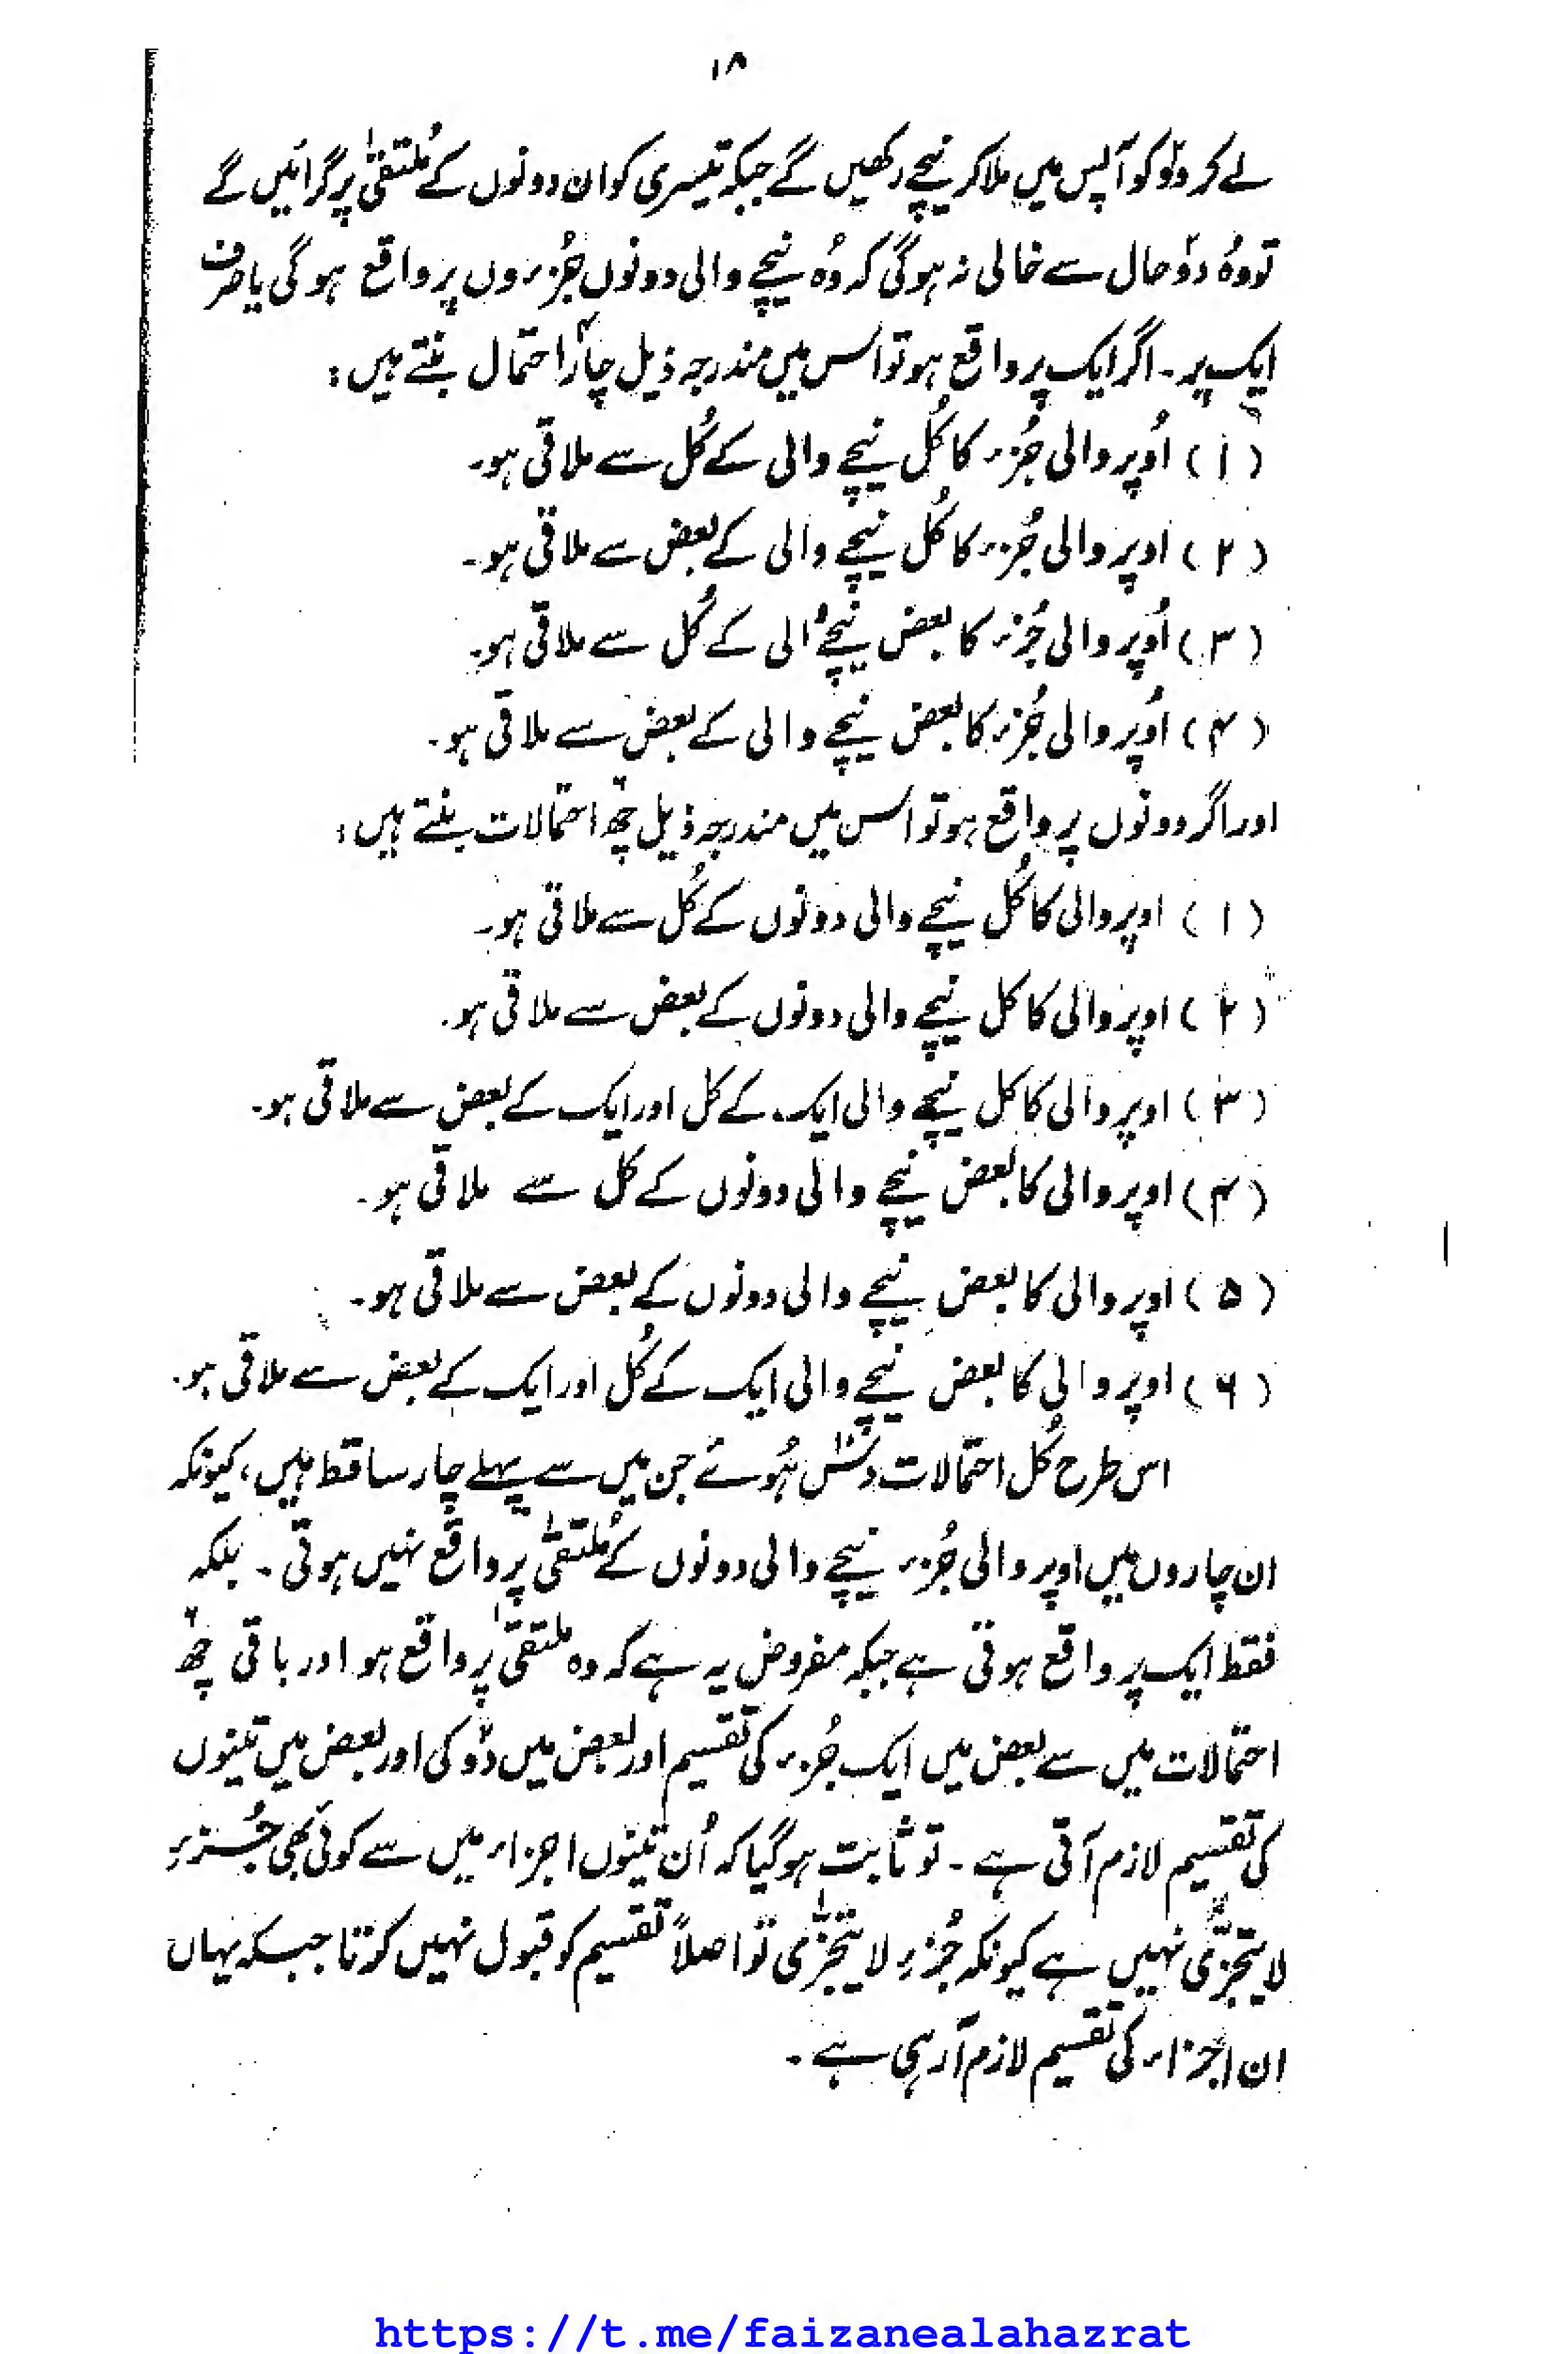 ۱۸
لے کر دو کو آپس میں ملا کر نیچے رکھیں گے جبکہ تیسری کو ان دونوں کے مُلتقیٰ پر گرائیں گے
تو وہُ دو حال سے خالی نہ ہوگی کہ وُہ نیچے والی دونوں جُزءوں پر واقع ہوگی یا صرف
ایک پر ۔ اگر ایک پر واقع ہو تو اس میں مندرجہ ذیل چار احتمال بنتے ہیں :
(۱) اُوپر والی جُزء کا کُل نیچے والی کے کُل سے ملاقی ہو۔
(۲) اوپر والی جُزء کا کُل نیچے والی کے بعض سے ملاقی ہو۔
(۳) اُوپر والی جُزء کا بعض نیچے والی کے کُل سے ملاقی ہو۔
(۴) اُوپر والی جُزء کا بعض نیچے والی کے بعض سے ملاقی ہو۔
اور اگر دونوں پر واقع ہو تو اس میں مندرجہ ذیل چھ احتمالات بنتے ہیں :
(۱) اوپر والی کا کُل نیچے والی دونوں کے کُل سے ملاقی ہو۔
(۲) اوپر والی کا کل نیچے والی دونوں کے بعض سے ملاقی ہو۔
(۳) اوپر والی کا کل نیچے والی ایک کے کل اور ایک کے بعض سے ملاقی ہو۔
(۴) اوپر والی کا بعض نیچے والی دونوں کے کل سے ملاقی ہو۔
(۵) اوپر والی کا بعض نیچے والی دونوں کے بعض سے ملاقی ہو۔
(۶) اوپر والی کا بعض نیچے والی ایک کے کُل اور ایک کے بعض سے ملاقی ہو۔
اس طرح کُل احتمالات دس ہُوئے جن میں سے پہلے چار ساقط ہیں، کیونکہ
ان چاروں میں اوپر والی جُزء نیچے والی دونوں کے مُلتقیٰ پر واقع نہیں ہوتی ۔ بلکہ
فقط ایک پر واقع ہوتی ہے جبکہ مفروض یہ ہے کہ وہ ملتقیٰ پر واقع ہو اور باقی چھ
احتمالات میں سے بعض میں ایک جُزء کی تقسیم اور بعض میں دو کی اور بعض میں تینوں
کی تقسیم لازم آتی ہے ۔ تو ثابت ہوگیا کہ اُن تینوں اجزاء میں سے کوئی بھی جُزءِ
لا یتجزّٰی نہیں ہے کیونکہ جُزءِ لا یتجزّٰی تو اصلاً تقسیم کو قبول نہیں کرتا جبکہ یہاں
ان اجزاء کی تقسیم لازم آرہی ہے ۔
https://t.me/faizanealahazrat